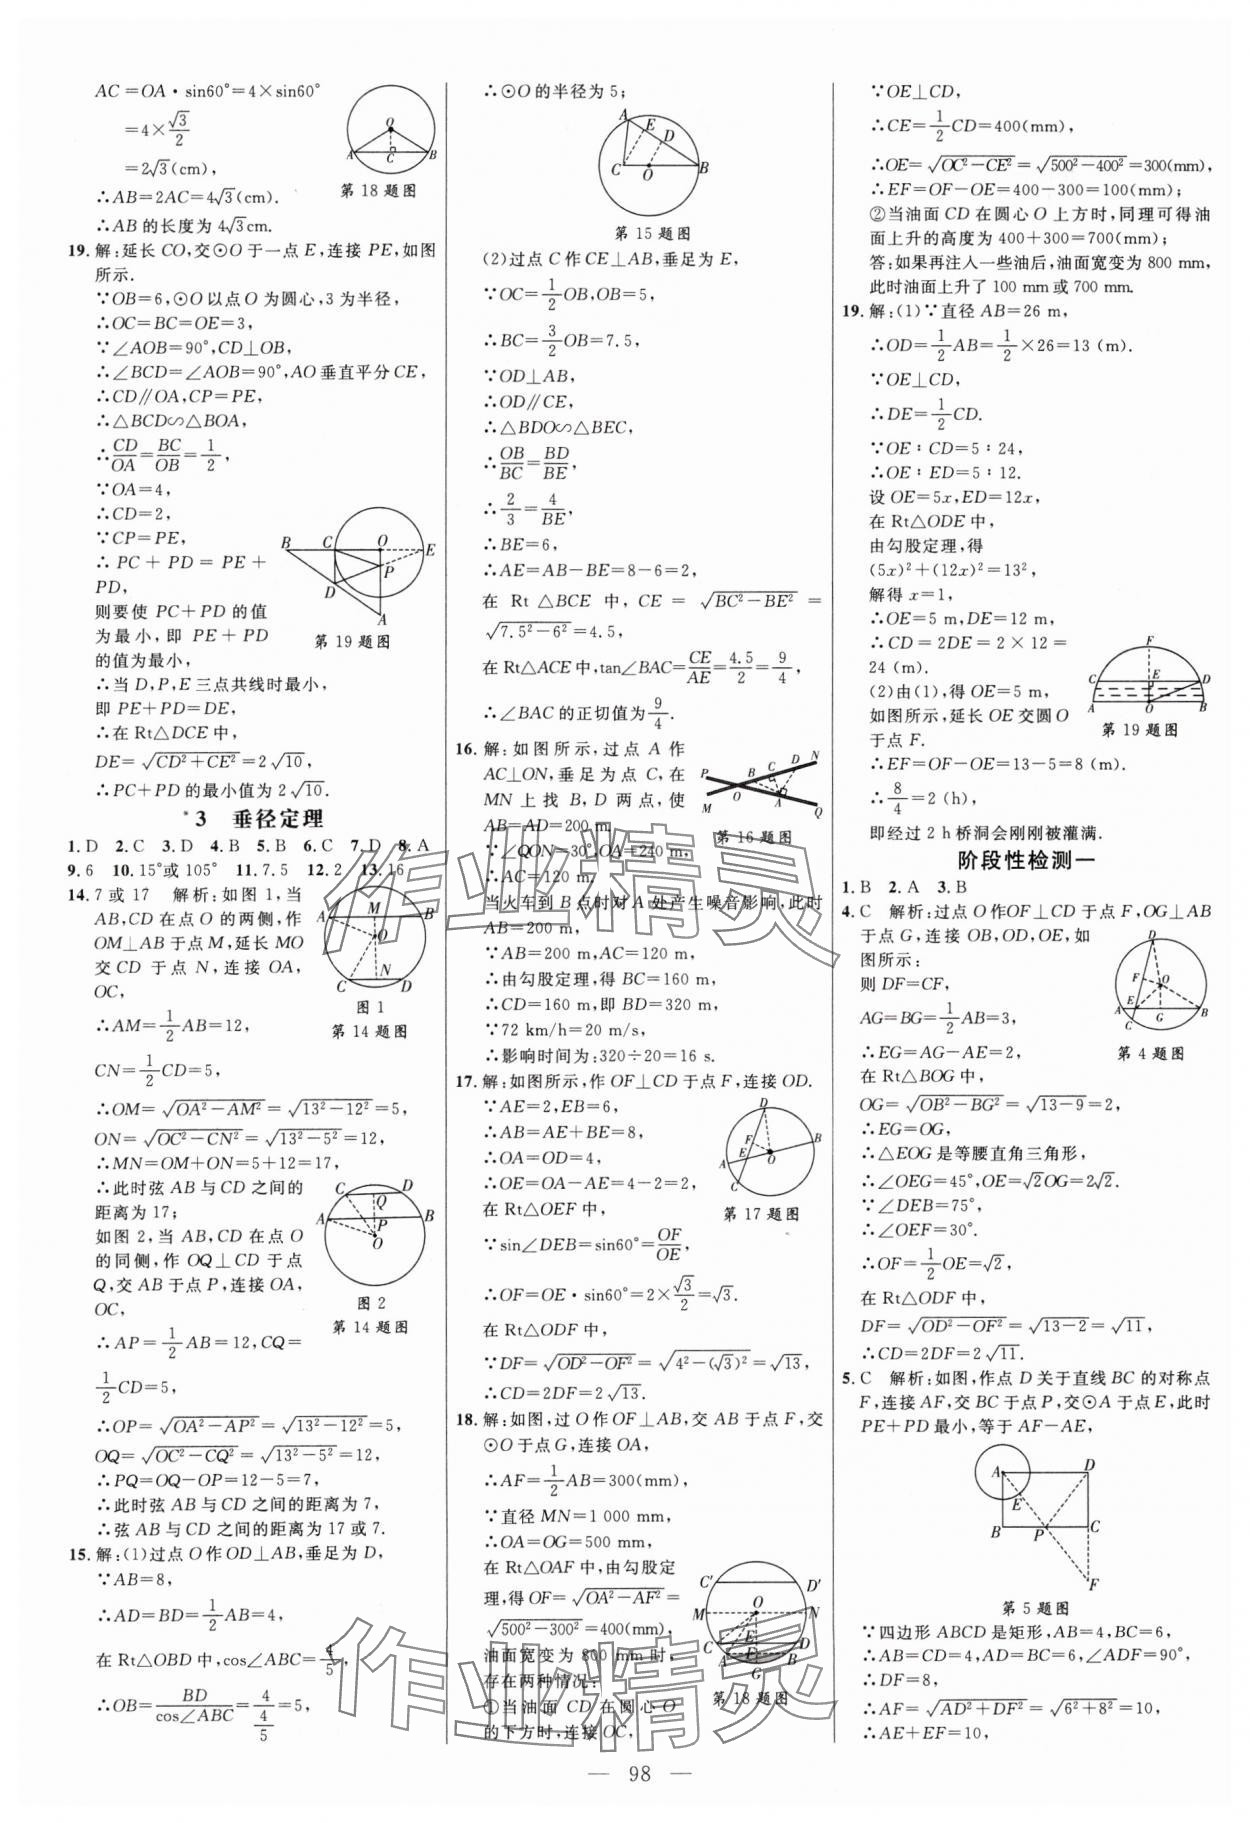 AC=OA·sin60°=4×sin60°
=4×√3/2
=2√3(cm),
∴AB=2AC=4√3(cm).
∴AB的长度为4√3cm.
第18题图
19.解:延长CO,交⊙O于一点E,连接PE,如图
所示.
∵OB=6,⊙O以点O为圆心,3为半径,
∴OC=BC=OE=3,
∵∠AOB=90°,CD⊥OB,
∴∠BCD=∠AOB=90°,AO垂直平分CE,
∴CD∥OA,CP=PE,
∴△BCD∽△BOA,
∴CD/OA=BC/OB=1/2,
∵OA=4,
∴CD=2,
∵CP=PE,
∴PC+PD=PE+
PD,
则要使PC+PD的值
为最小,即PE+PD
的值为最小,
∴当D,P,E三点共线时最小,
即PE+PD=DE,
∴在Rt△DCE中,
DE=√(CD²+CE²)=2√10,
∴PC+PD的最小值为2√10.
第19题图
*3 垂径定理
1.D 2.C 3.D 4.B 5.B 6.C 7.D 8.A
9.6 10.15°或105° 11.7.5 12.2 13.16
14.7或17 解析:如图1,当
AB,CD在点O的两侧,作
OM⊥AB于点M,延长MO
交CD于点N,连接OA,
OC,
∴AM=1/2AB=12,
CN=1/2CD=5,
∴OM=√(OA²-AM²)=√(13²-12²)=5,
ON=√(OC²-CN²)=√(13²-5²)=12,
∴MN=OM+ON=5+12=17,
∴此时弦AB与CD之间的
距离为17;
如图2,当AB,CD在点O
的同侧,作OQ⊥CD于点
Q,交AB于点P,连接OA,
OC,
∴AP=1/2AB=12,CQ=
1/2CD=5,
∴OP=√(OA²-AP²)=√(13²-12²)=5,
OQ=√(OC²-CQ²)=√(13²-5²)=12,
∴PQ=OQ-OP=12-5=7,
∴此时弦AB与CD之间的距离为7,
∴弦AB与CD之间的距离为17或7.
图1
第14题图
图2
第14题图
15.解:(1)过点O作OD⊥AB,垂足为D,
∵AB=8,
∴AD=BD=1/2AB=4,
在Rt△OBD中,cos∠ABC=4/5,
∴OB=BD/cos∠ABC=4/(4/5)=5,
∴⊙O的半径为5;
第15题图
(2)过点C作CE⊥AB,垂足为E,
∵OC=1/2OB,OB=5,
∴BC=3/2OB=7.5,
∵OD⊥AB,
∴OD∥CE,
∴△BDO∽△BEC,
∴OB/BC=BD/BE,
∴2/3=4/BE,
∴BE=6,
∴AE=AB-BE=8-6=2,
在Rt△BCE中,CE=√(BC²-BE²)=
√(7.5²-6²)=4.5,
在Rt△ACE中,tan∠BAC=CE/AE=4.5/2=9/4,
∴∠BAC的正切值为9/4.
16.解:如图所示,过点A作
AC⊥ON,垂足为点C,在
MN上找B,D两点,使
AB=AD=200 m,
∵∠QON=30°,OA=240 m,
∴AC=120 m,
当火车到B点时对A处产生噪音影响,此时
AB=200 m,
∵AB=200 m,AC=120 m,
∴由勾股定理,得BC=160 m,
∴CD=160 m,即BD=320 m,
∵72 km/h=20 m/s,
∴影响时间为:320÷20=16 s.
第16题图
17.解:如图所示,作OF⊥CD于点F,连接OD.
∵AE=2,EB=6,
∴AB=AE+BE=8,
∴OA=OD=4,
∴OE=OA-AE=4-2=2,
在Rt△OEF中,
∵sin∠DEB=sin60°=OF/OE,
∴OF=OE·sin60°=2×√3/2=√3.
在Rt△ODF中,
∵DF=√(OD²-OF²)=√(4²-(√3)²)=√13,
∴CD=2DF=2√13.
第17题图
18.解:如图,过O作OF⊥AB,交AB于点F,交
⊙O于点G,连接OA,
∴AF=1/2AB=300(mm),
∵直径MN=1 000 mm,
∴OA=OG=500 mm,
在Rt△OAF中,由勾股定
理,得OF=√(OA²-AF²)=
√(500²-300²)=400(mm),
油面宽变为800 mm时,
存在两种情况:
①当油面CD在圆心O
的下方时,连接OC,
第18题图
∵OE⊥CD,
∴CE=1/2CD=400(mm),
∴OE=√(OC²-CE²)=√(500²-400²)=300(mm),
∴EF=OF-OE=400-300=100(mm);
②当油面CD在圆心O上方时,同理可得油
面上升的高度为400+300=700(mm),
答:如果再注人一些油后,油面宽变为800 mm,
此时油面上升了100 mm或700 mm.
19.解:(1)∵直径AB=26 m,
∴OD=1/2AB=1/2×26=13 (m).
∵OE⊥CD,
∴DE=1/2CD.
∵OE∶CD=5∶24,
∴OE∶ED=5∶12.
设OE=5x,ED=12x,
在Rt△ODE中,
由勾股定理,得
(5x)²+(12x)²=13²,
解得x=1,
∴OE=5 m,DE=12 m,
∴CD=2DE=2×12=
24 (m).
(2)由(1),得OE=5 m,
如图所示,延长OE交圆O
于点F.
∴EF=OF-OE=13-5=8 (m).
∴8/4=2 (h),
即经过2 h桥洞会刚刚被灌满.
第19题图
阶段性检测一
1.B 2.A 3.B
4.C 解析:过点O作OF⊥CD于点F,OG⊥AB
于点G,连接OB,OD,OE,如
图所示:
则DF=CF,
AG=BG=1/2AB=3,
∴EG=AG-AE=2,
在Rt△BOG中,
OG=√(OB²-BG²)=√(13-9)=2,
∴EG=OG,
∴△EOG是等腰直角三角形,
∴∠OEG=45°,OE=√2OG=2√2.
∵∠DEB=75°,
∴∠OEF=30°.
∴OF=1/2OE=√2,
在Rt△ODF中,
DF=√(OD²-OF²)=√(13-2)=√11,
∴CD=2DF=2√11.
第4题图
5.C 解析:如图,作点D关于直线BC的对称点
F,连接AF,交BC于点P,交⊙A于点E,此时
PE+PD最小,等于AF-AE,
第5题图
∵四边形ABCD是矩形,AB=4,BC=6,
∴AB=CD=4,AD=BC=6,∠ADF=90°,
∴DF=8,
∴AF=√(AD²+DF²)=√(6²+8²)=10,
∴AE+EF=10,
— 98 —
作业精灵
作业精灵